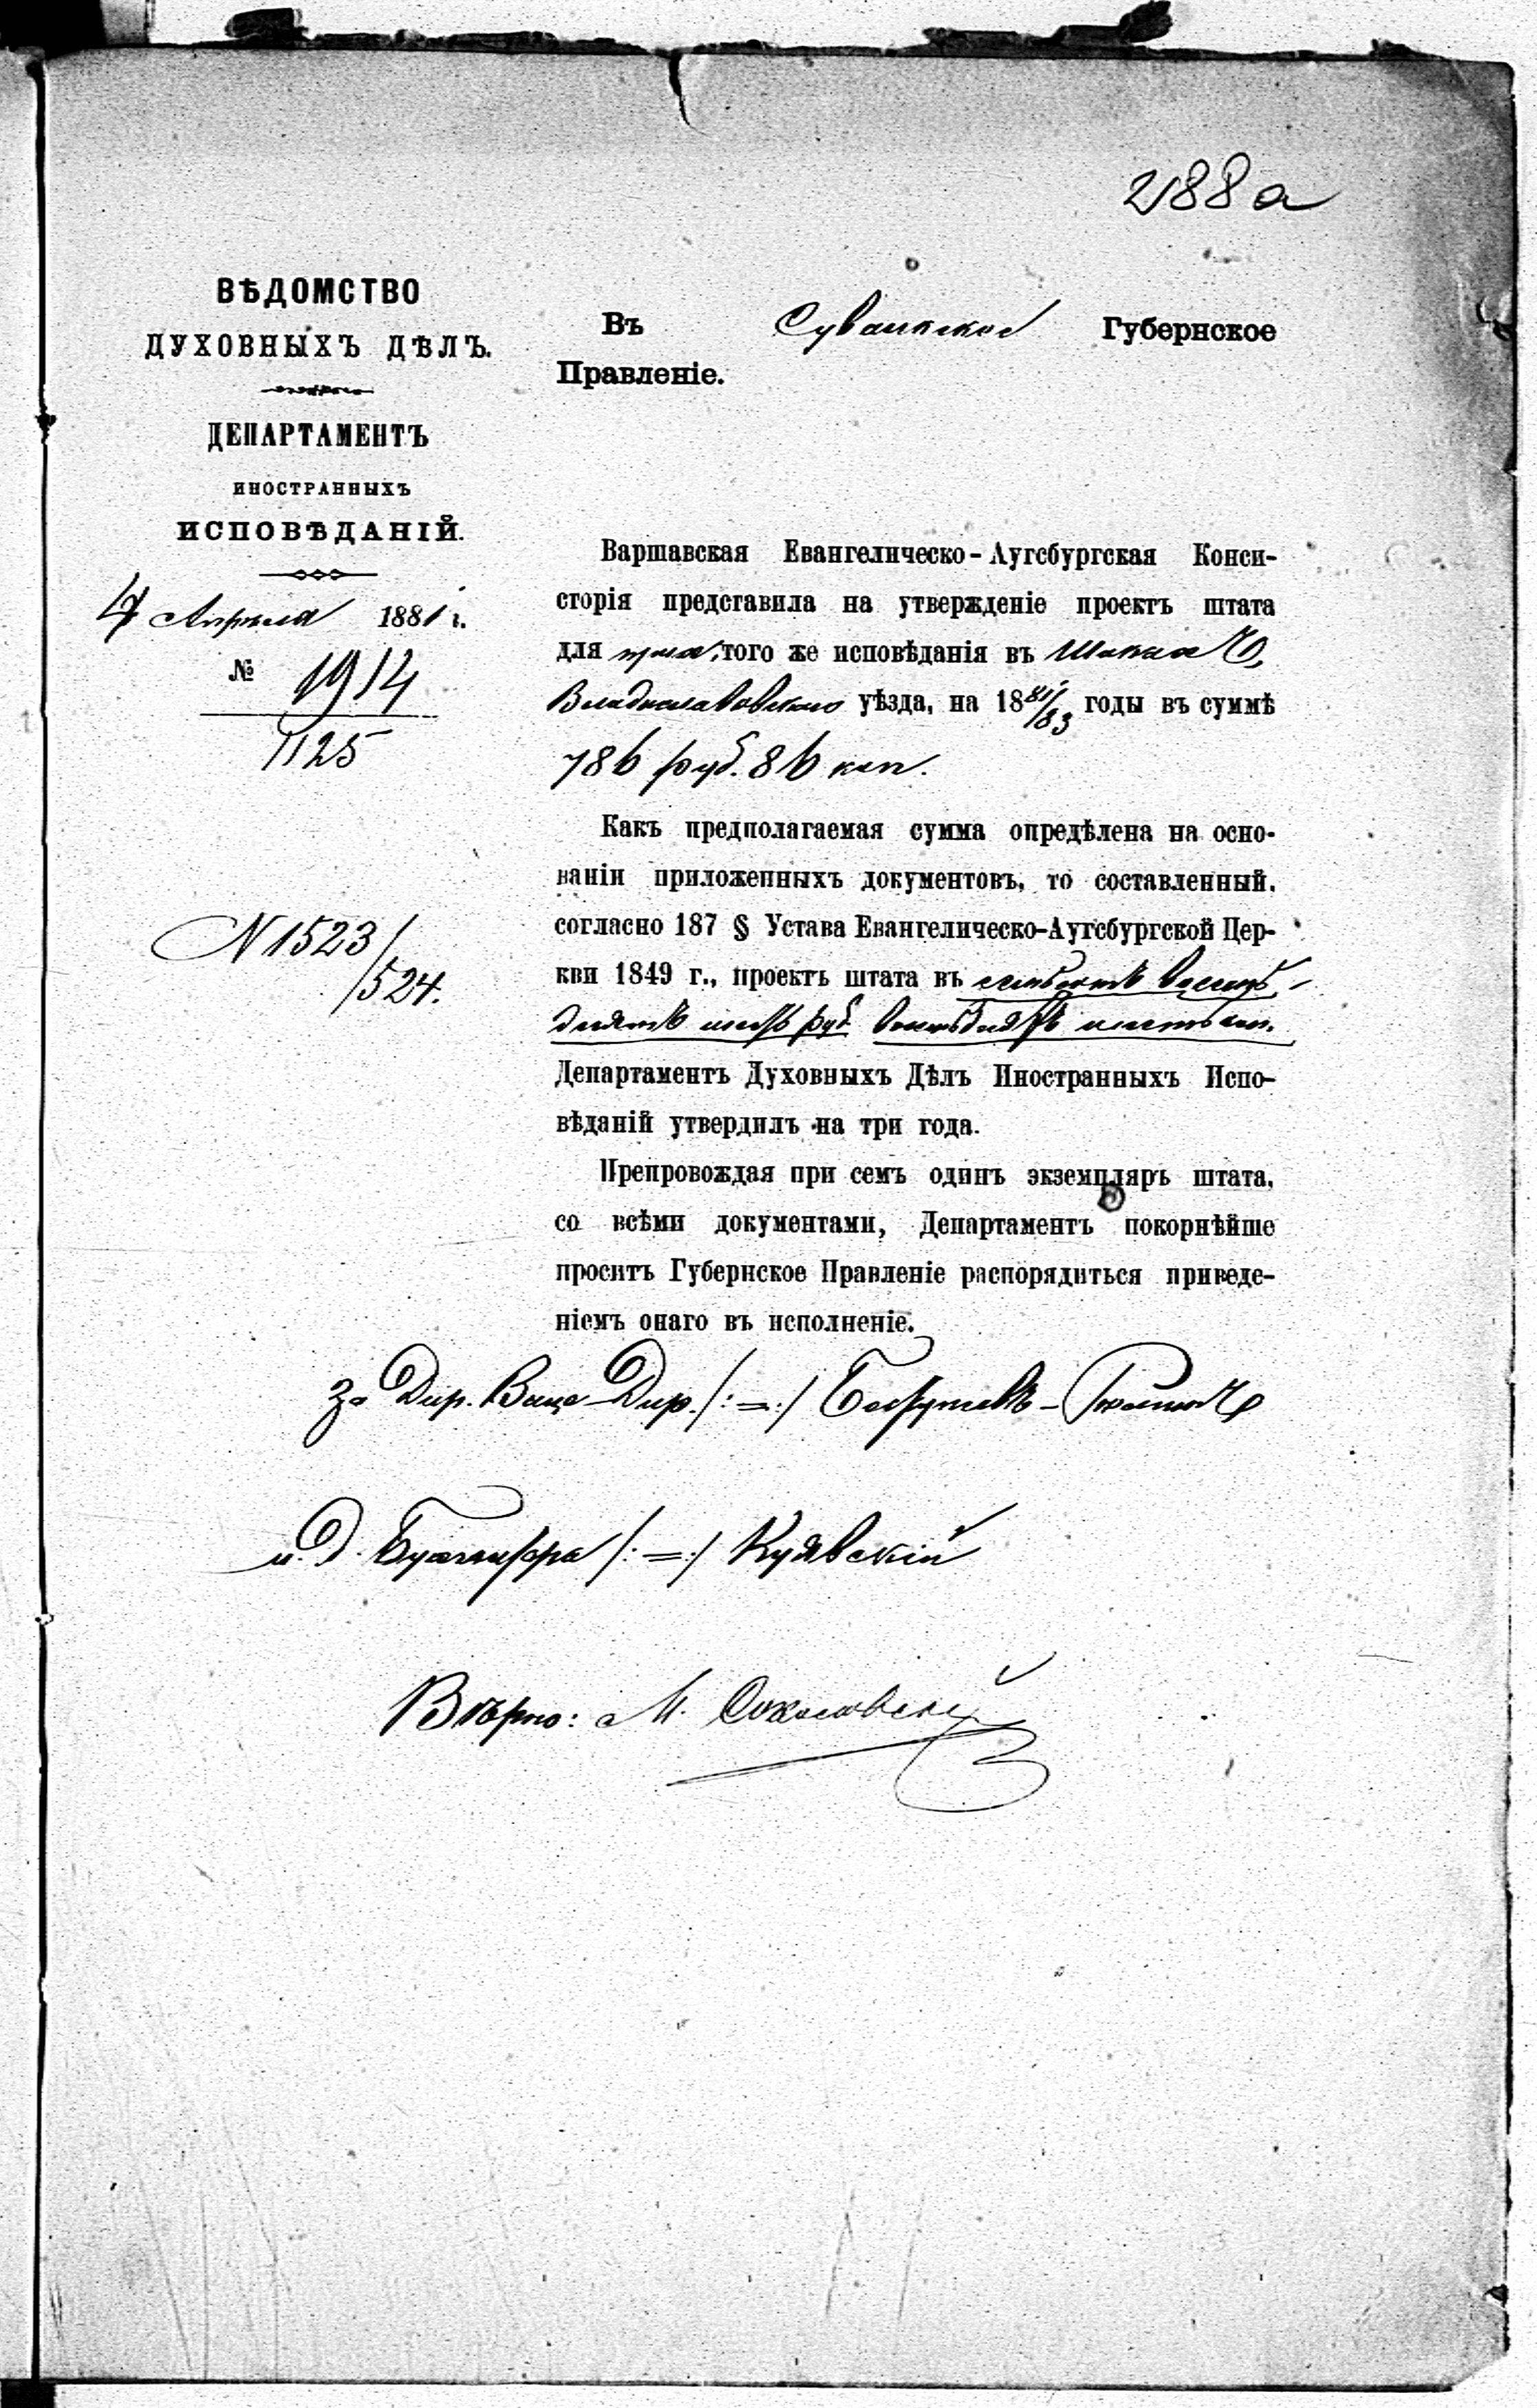 288а
ВѢДОМСТВО
ДУХОВНЫХЪ ДѢЛЪ.
ДЕПАРТАМЕНТЪ
ИНОСТРАННЫХЪ
ИСПОВѢДАНІЙ.
4 Апрѣля 1881 г.
№ 1914
1125
N 1523/
/524.
Въ Сувалкское Губернское
Правленіе.
Варшавская Евангелическо-Аугсбургская Конси-
сторія представила на утвержденіе проектъ штата
для того же исповѣданія въ Шакахъ,
Владиславовскаго уѣзда, на 1881/83 годы въ суммѣ
786 руб. 86 коп.
Какъ предполагаемая сумма опредѣлена на осно-
ваніи приложенныхъ документовъ, то составленный,
согласно 187 § Устава Евангелическо-Аугсбургской Цер-
кви 1849 г., проектъ штата въ семьсотъ восемь-
десятъ шесть руб. восемьдесятъ шесть коп.
Департаментъ Духовныхъ Дѣлъ Иностранныхъ Испо-
вѣданій утвердилъ на три года.
Препровождая при семъ одинъ экземпляръ штата,
со всѣми документами, Департаментъ покорнѣйше
проситъ Губернское Правленіе распорядиться приведе-
ніемъ онаго въ исполненіе.
За Дир. Вице-Дир. /:=:/
и. д. Бухгалтера /:=:/ Куявскій
Вѣрно: М. Соколовскій